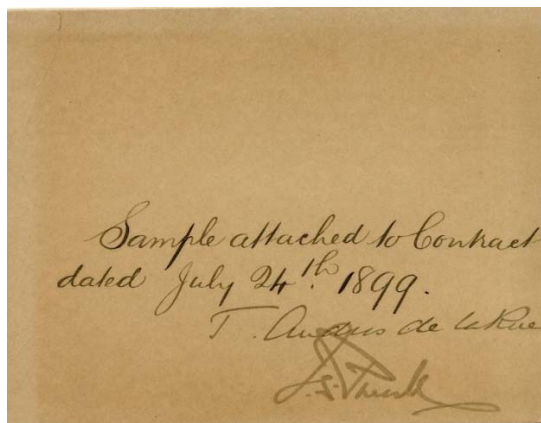 Sample attached to Contract
dated July 24th. 1899.
T. Andros de la Rue
J. S.